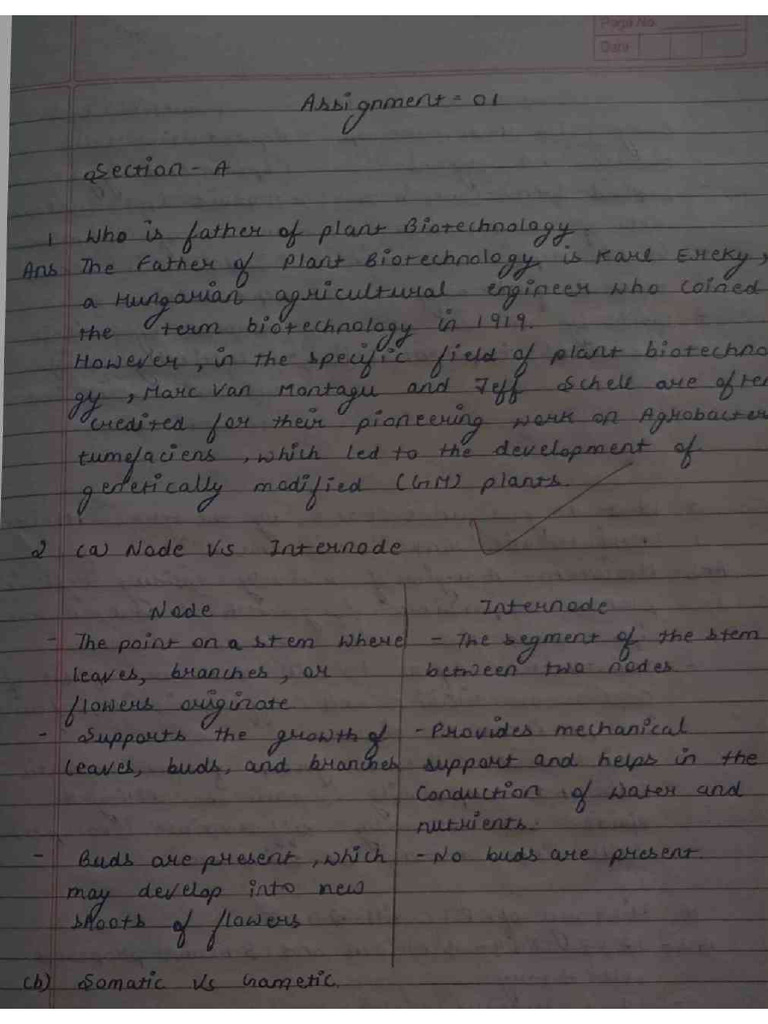 Page No.
Date
Assignment = 01
Section - A
1 Who is father of plant Biotechnology.
Ans The Father of Plant Biotechnology is Karl Ereky,
a Hungarian agricultural engineer who coined
the term biotechnology in 1919.
However, in the specific field of plant biotechno
gy, Marc Van Montagu and Jeff Schell are often
credited for their pioneering work on Agrobacter
tumefaciens, which led to the development of
genetically modified (GM) plants.
2 (a) Node V.s Internode
Node
Internode
- The point on a stem where
leaves, branches, or
flowers originate
- The segment of the stem
between two nodes
- Supports the growth of
leaves, buds, and branches
- Provides mechanical
support and helps in the
conduction of water and
nutrients.
- Buds are present, which
may develop into new
shoots of flowers
- No buds are present.
(b) Somatic Vs Gametic.